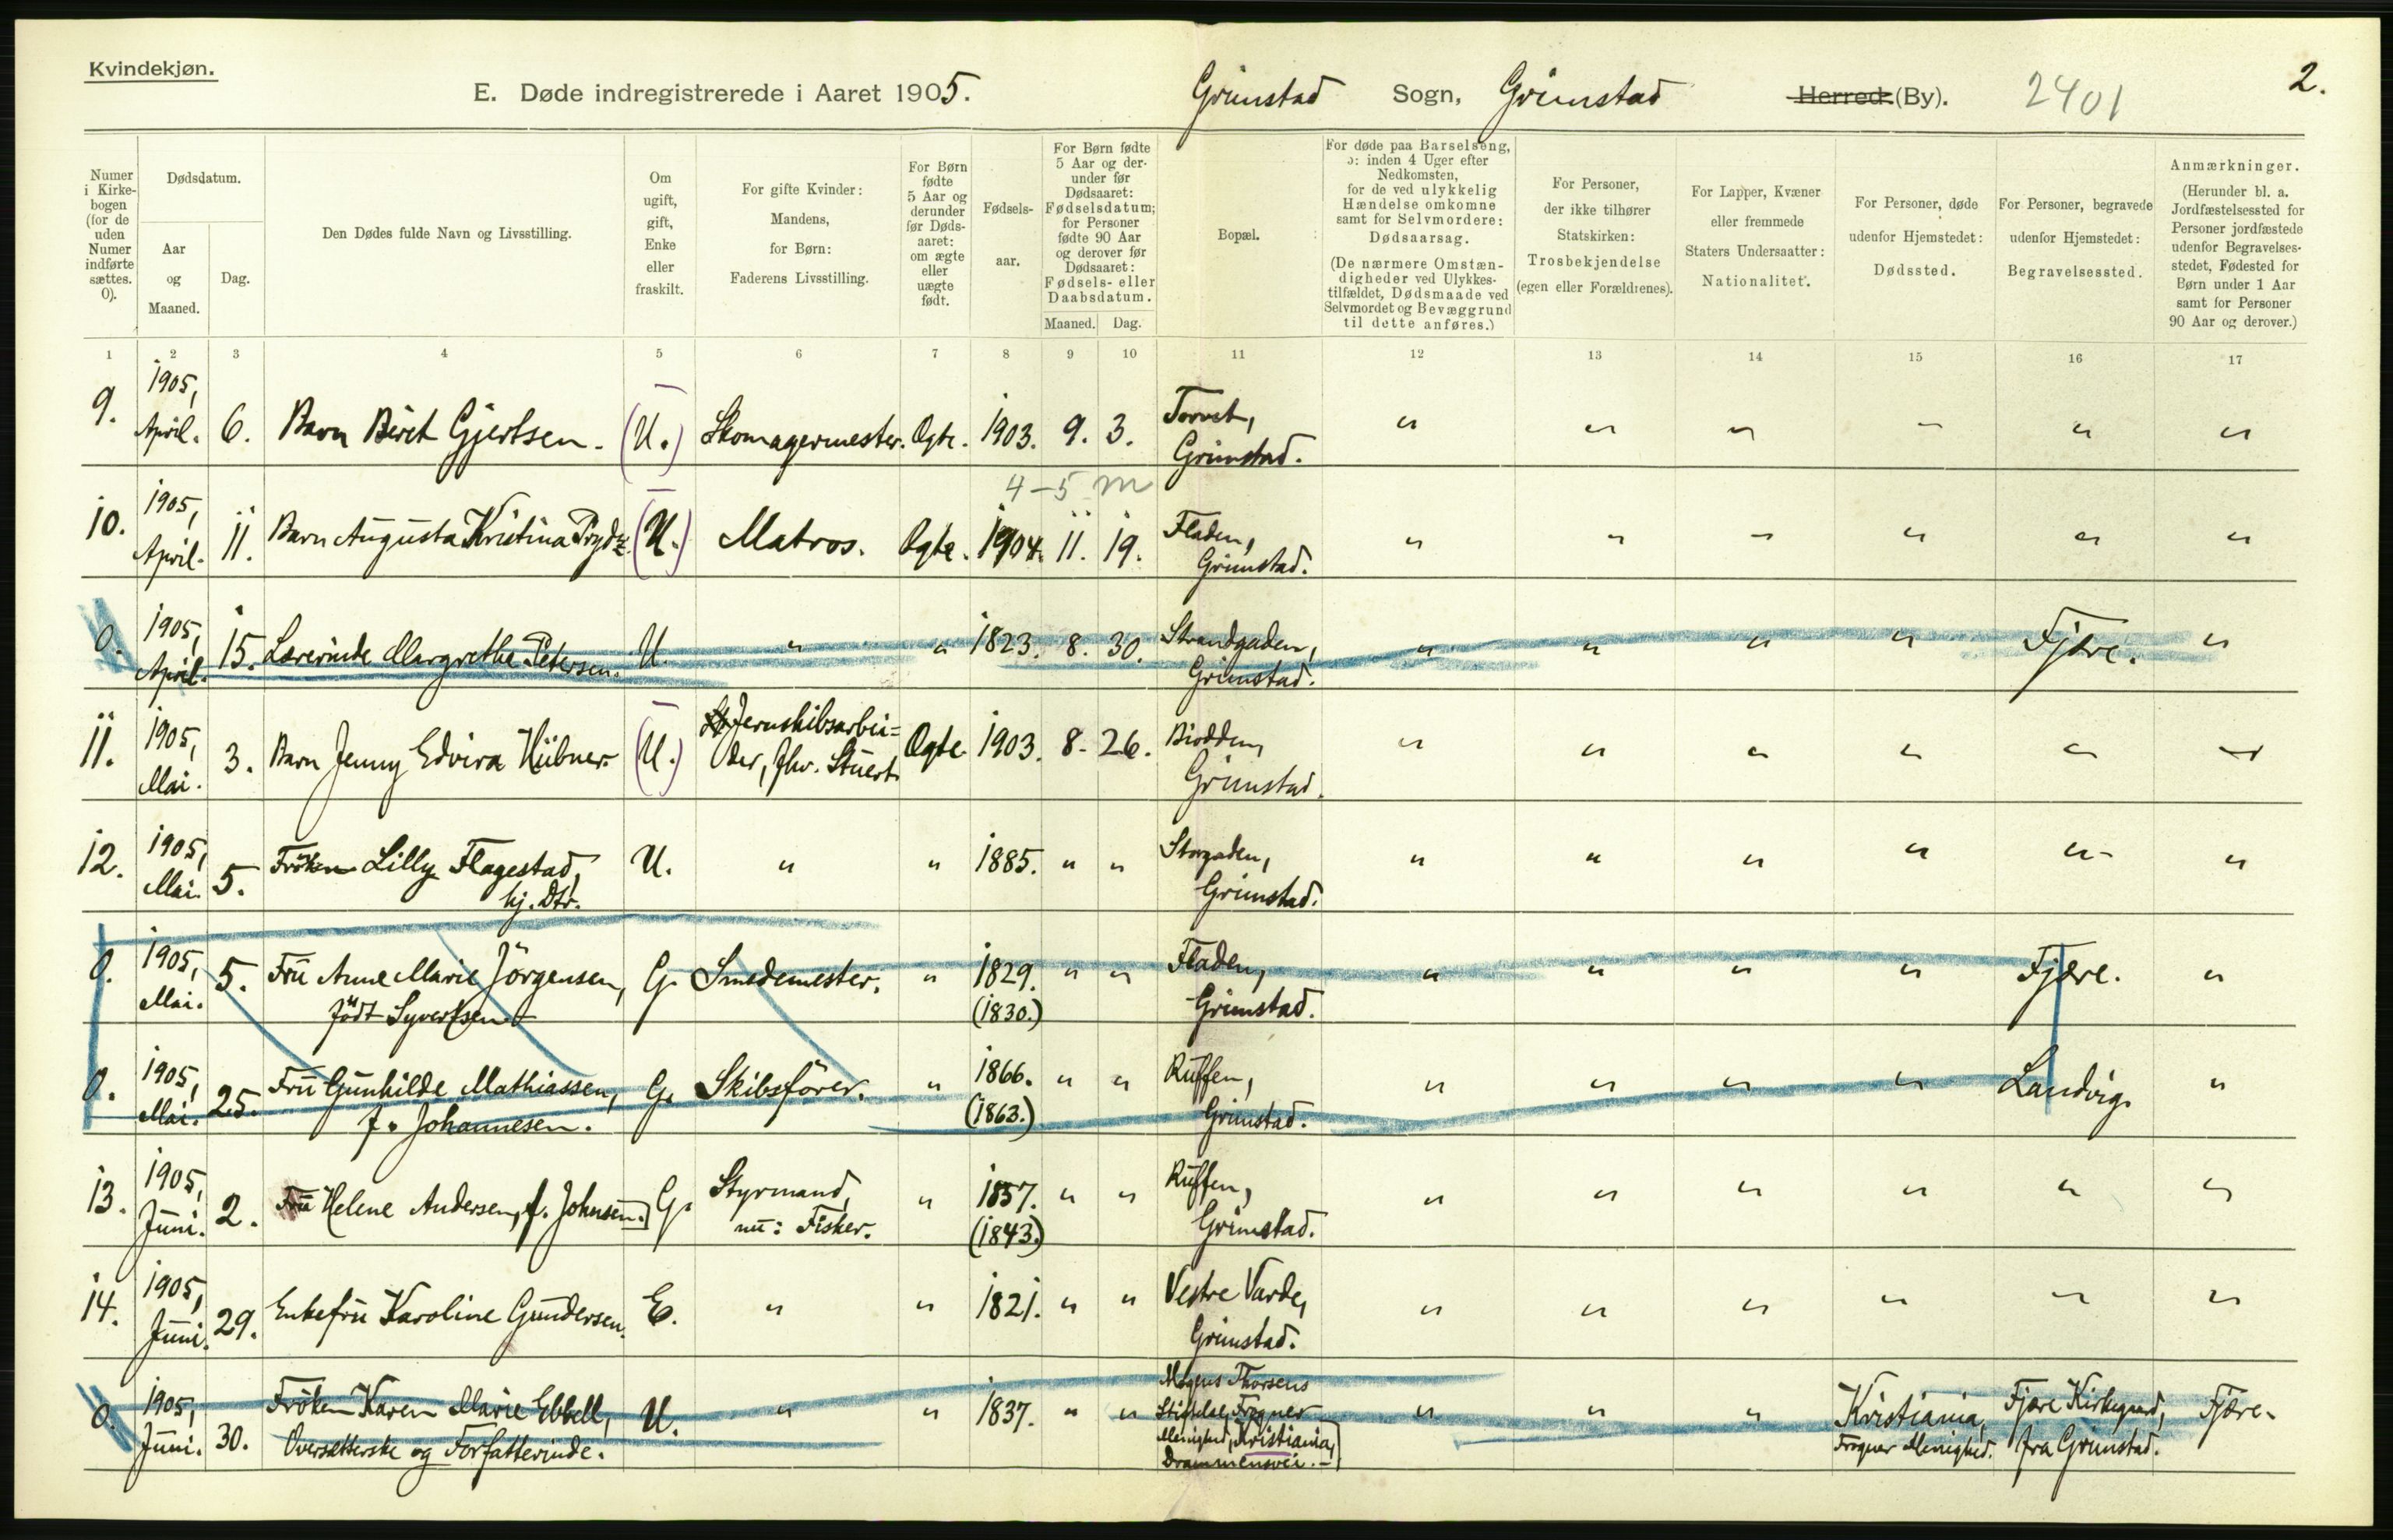 Kvindekjøn.
E. Døde indregistrerede i Aaret 1905.
Grimstad Sogn, Grimstad Herred (By). 2401
2.
Numer i Kirkebogen (for de uden Numer indførte sættes. 0).
Dødsdatum.
Aar og Maaned.
Dag.
Den Dødes fulde Navn og Livsstilling.
Om ugift, gift, Enke eller fraskilt.
For gifte Kvinder: Mandens, for Børn: Faderens Livsstilling.
For Børn fødte 5 Aar og derunder før Døds-aaret: om ægte eller uægte født.
Fødsels-aar.
For Børn fødte 5 Aar og der-under før Dødsaaret: Fødselsdatum; for Personer fødte 90 Aar og derover før Dødsaaret: Fødsels- eller Daabsdatum.
Maaned. Dag.
Bopæl.
For døde paa Barselseng, ɔ: inden 4 Uger efter Nedkomsten, for de ved ulykkelig Hændelse omkomne samt for Selvmordere: Dødsaarsag. (De nærmere Omstæn-digheder ved Ulykkes-tilfældet, Dødsmaade ved Selvmordet og Bevæggrund til dette anføres.)
For Personer, der ikke tilhører Statskirken: Trosbekjendelse (egen eller Forældrenes).
For Lapper, Kvæner eller fremmede Staters Undersaatter: Nationalitet.
For Personer, døde udenfor Hjemstedet: Dødssted.
For Personer, begravede udenfor Hjemstedet: Begravelsessted.
Anmærkninger. (Herunder bl. a. Jordfæstelsessted for Personer jordfæstede udenfor Begravelses-stedet, Fødested for Børn under 1 Aar samt for Personer 90 Aar og derover.)
1 2 3 4 5 6 7 8 9 10 11 12 13 14 15 16 17
9. 1905, April. 6. Barn Birit Gjertsen. (U.) Skomagermester. Ægte. 1903. 9. 3. Torvet, Grimstad. " " " " " "
4-5 m
10. 1905, April. 11. Barn Augusta Kristina Prydz. (U.) Matros. Ægte. 1904. 11. 19. Fladen, Grimstad. " " " " " "
0. 1905, April. 15. Lærerinde Margrethe Petersen. U. " " 1823. 8. 30. Strandgaden, Grimstad. " " " " Fjære. "
11. 1905, Mai. 3. Barn Jenny Edvira Hübner (U.) Jernskibsarbei=der, fhv. Stuert. Ægte. 1903. 8. 26. Biodden, Grimstad. " " " " " "
12. 1905, Mai. 5. Frøken Lilly Flagestad, hj. Dtr. U. " " 1885. " " Storgaden, Grimstad. " " " " " "
0. 1905, Mai. 5. Fru Anne Marie Jörgensen, født Syvertsen. G. Smedemester. " 1829. (1830.) " " Fladen, Grimstad. " " " " Fjære. "
0. 1905, Mai. 25. Fru Gunhilde Mathiassen, f. Johannesen. G. Skibsfører. " 1866. (1863.) " " Ruffen, Grimstad. " " " " Landvig. "
13. 1905, Juni. 2. Fru Helene Andersen, f. Johnsen. G. Styrmand, nu: Fisker. " 1857. (1843.) " " Ruffen, Grimstad. " " " " " "
14. 1905, Juni. 29. Enkefru Karoline Gundersen. E. " " 1821. " " Vestre Varde, Grimstad. " " " " " "
0. 1905, Juni. 30. Frøken Karen Marie Ebbell, Oversætterske og Forfatterinde. U. " " 1837. " " Mogens Thorsens Stiftelse, Frogner Menighed, Kristiania, Drammensvei. " " " Kristiania, Frogner Menighed. Fjære Kirkegaard, fra Grimstad. Fjære.